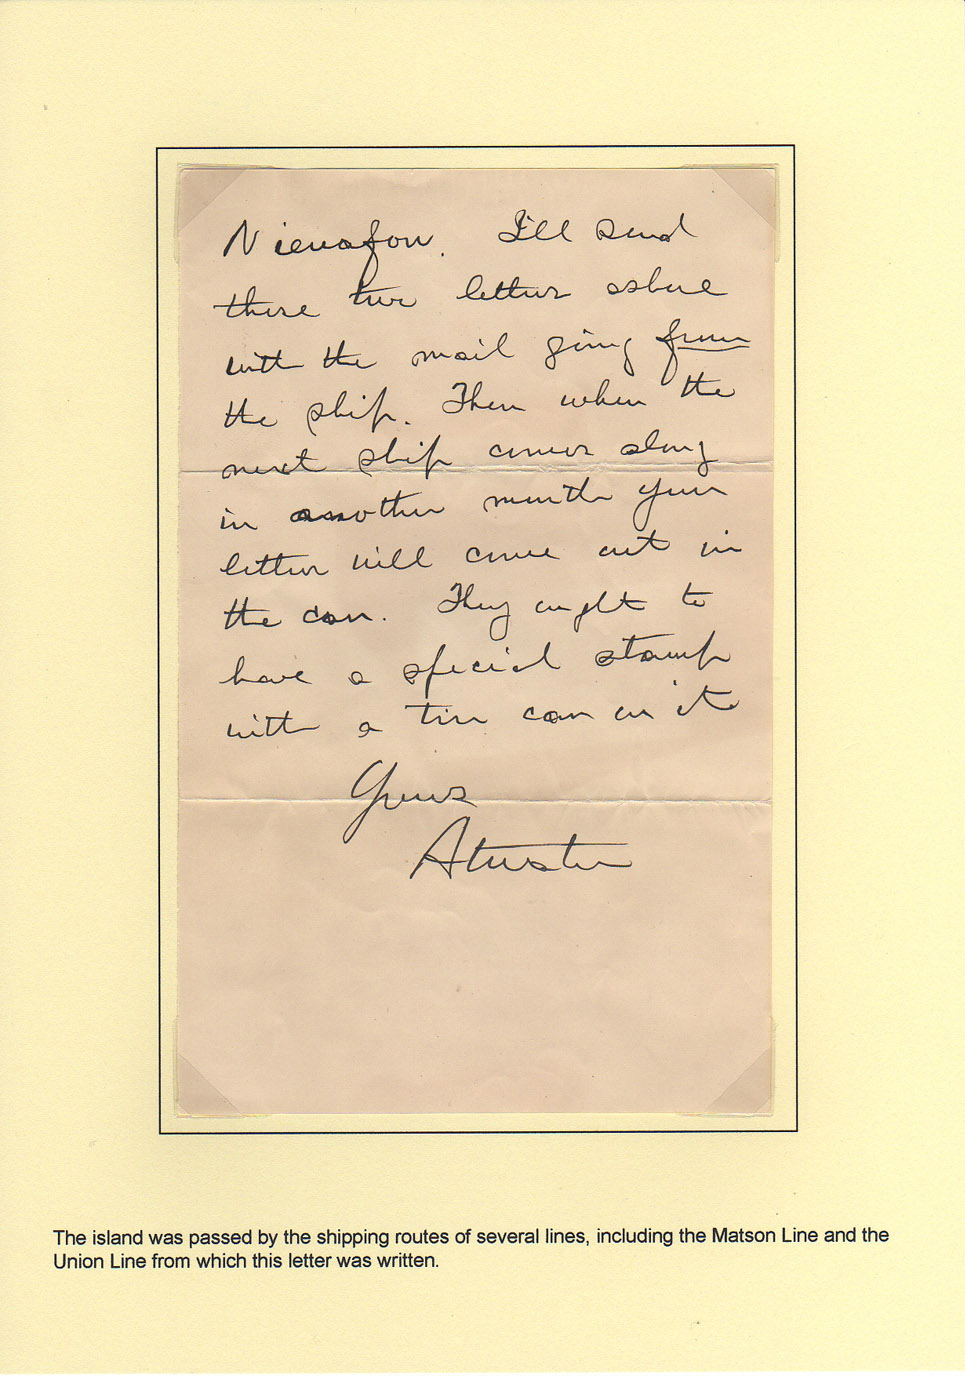 Nieuafou. I'll send
these two letters ashore
with the mail going from
the ship. Then when the
next ship comes along
in another month your
letter will come out in
the can. They ought to
have a special stamp
with a tin can on it
Yours
The island was passed by the shipping routes of several lines, including the Matson Line and the
Union Line from which this letter was written.